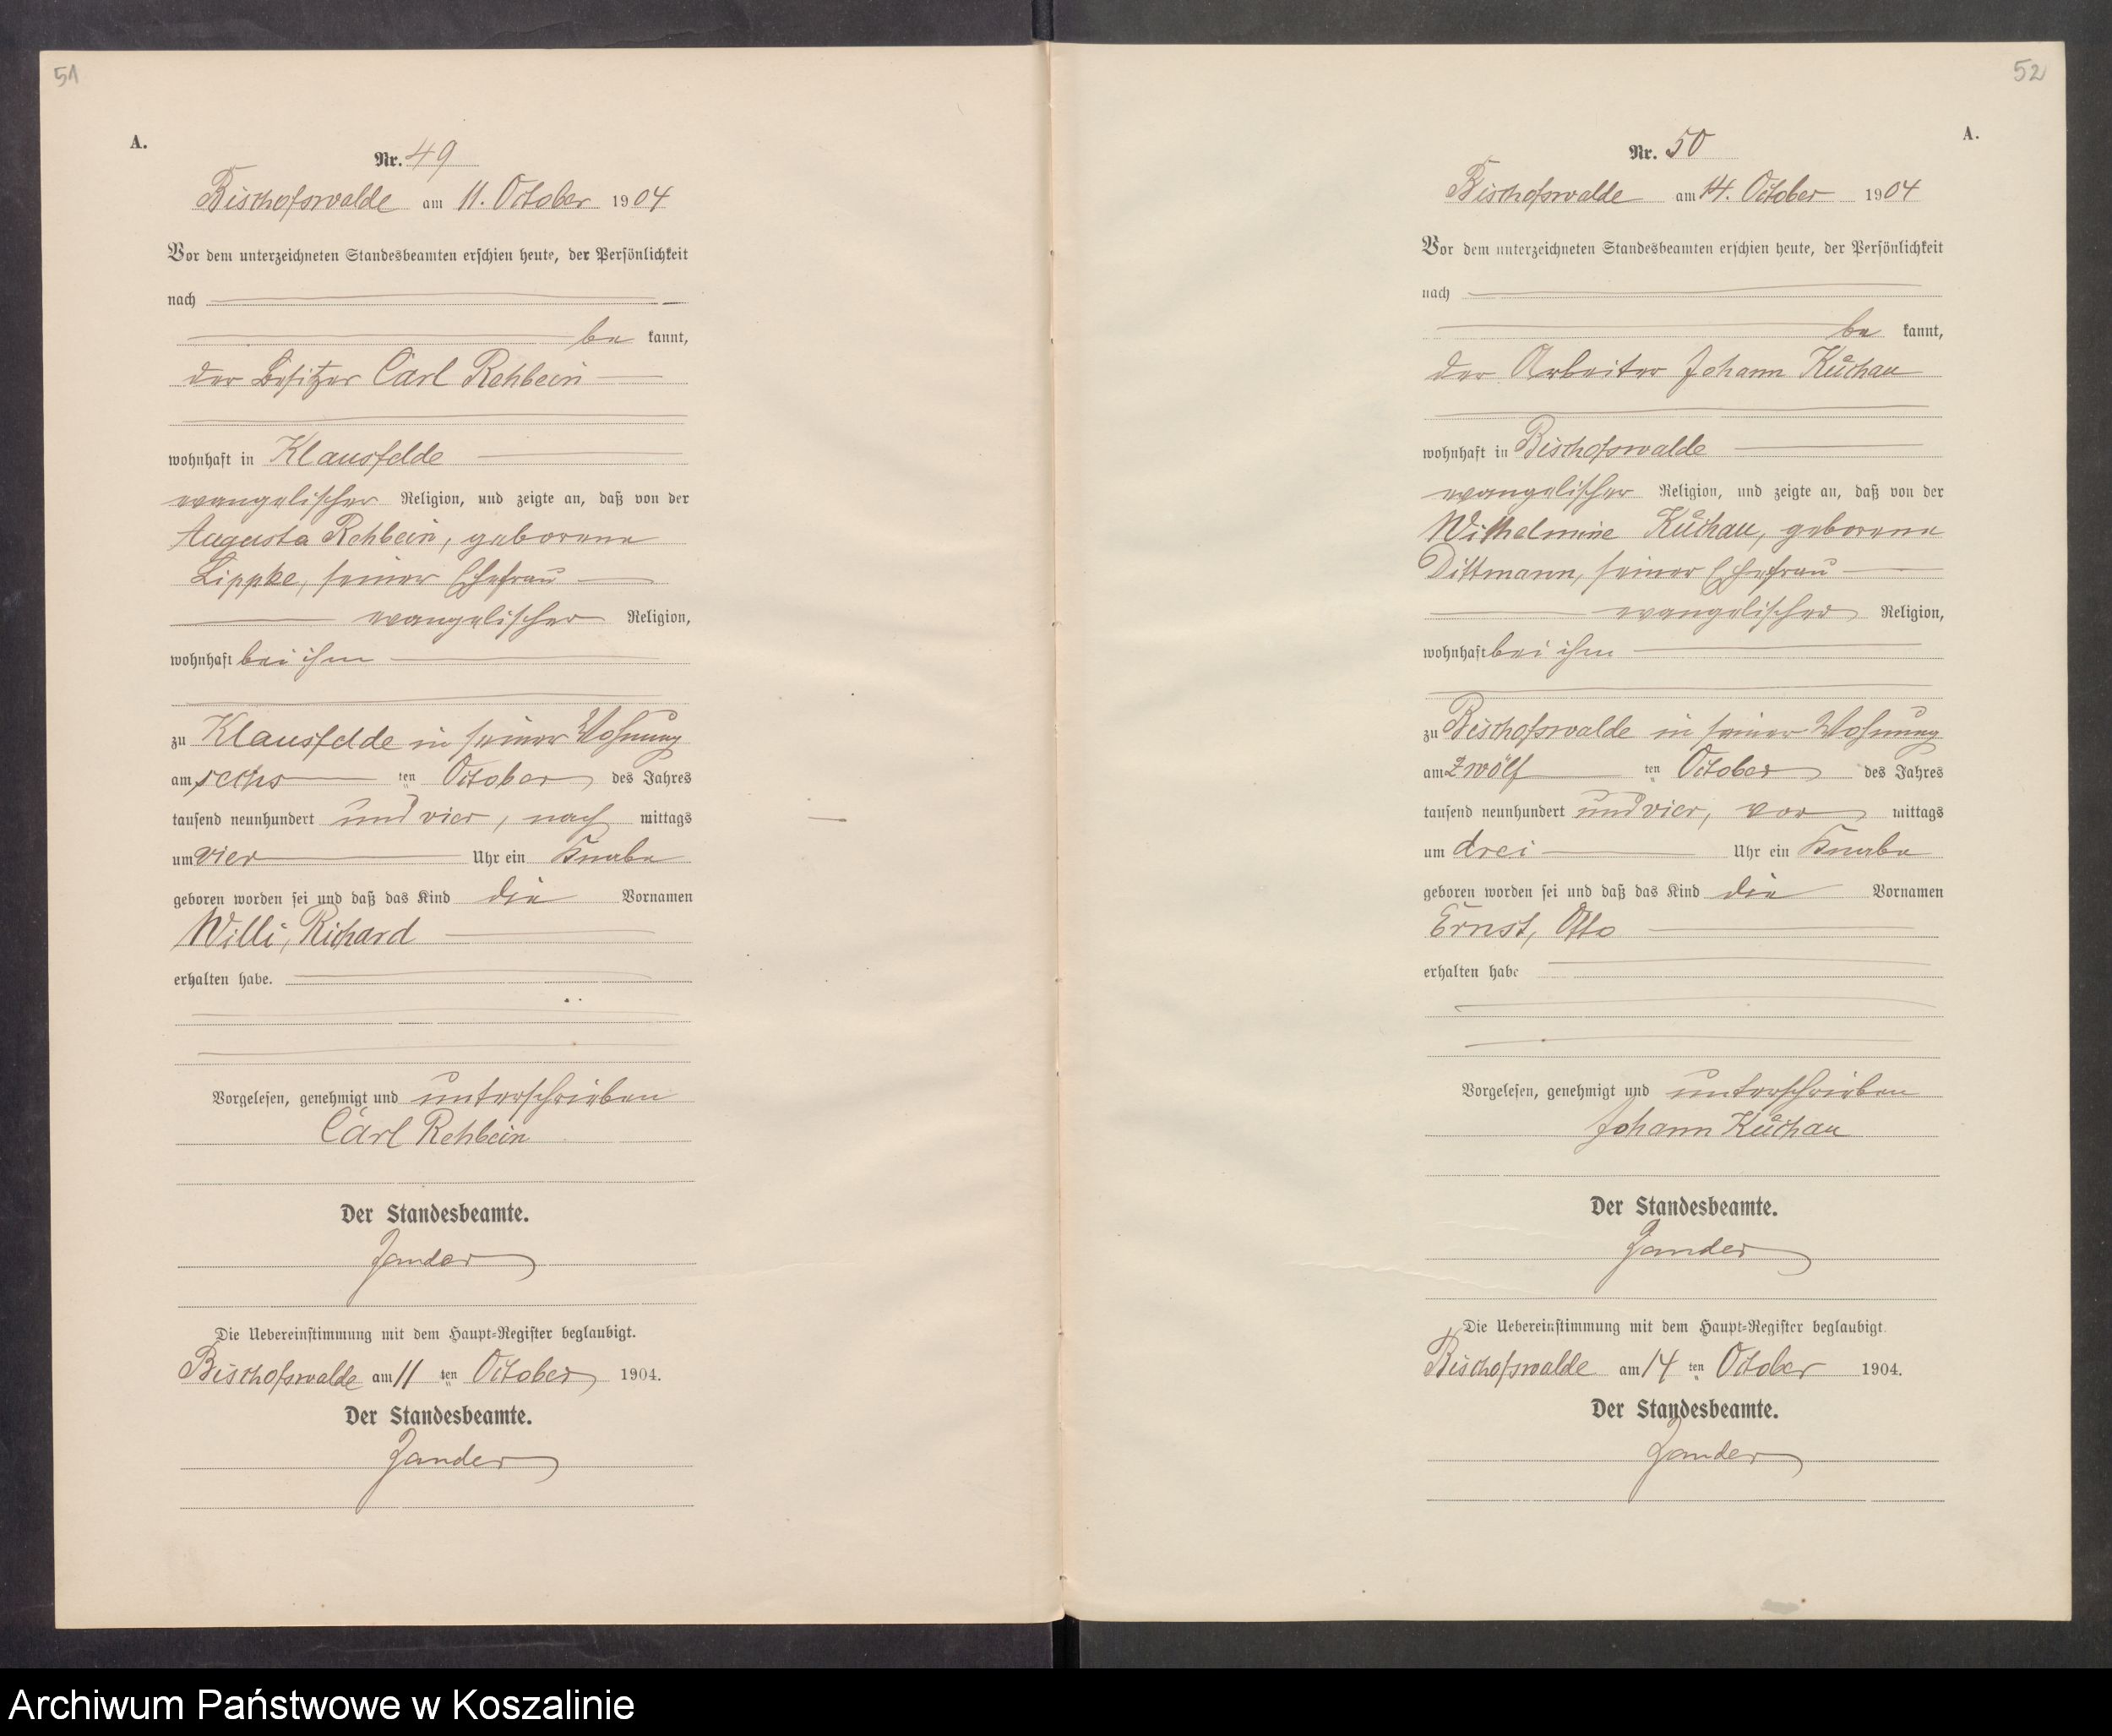 51
A.
Nr. 49
Bischofswalde am 11. October 1904
Vor dem unterzeichneten Standesbeamten erschien heute, der Persönlichkeit
nach
be kannt,
der Besitzer Carl Rehbein
wohnhaft in Klausfelde
evangelischer Religion, und zeigte an, daß von der
Augusta Rehbein, geborene
Lippke, seiner Ehefrau
evangelischer Religion,
wohnhaft bei ihm
zu Klausfelde in seiner Wohnung
am sechs ten October des Jahres
tausend neunhundert und vier, nach mittags
um vier Uhr ein Knabe
geboren worden sei und daß das Kind die Vornamen
Willi, Richard
erhalten habe.
Vorgelesen, genehmigt und unterschrieben
Carl Rehbein
Der Standesbeamte.
Zander
Die Uebereinstimmung mit dem Haupt-Register beglaubigt.
Bischofswalde am 11 ten October 1904.
Der Standesbeamte.
Zander
52
A.
Nr. 50
Bischofswalde am 14. October 1904
Vor dem unterzeichneten Standesbeamten erschien heute, der Persönlichkeit
nach
be kannt,
der Arbeiter Johann Kuchau
wohnhaft in Bischofswalde
evangelischer Religion, und zeigte an, daß von der
Wilhelmine Kuchau, geborene
Dittmann, seiner Ehefrau
evangelischer Religion,
wohnhaft bei ihm
zu Bischofswalde in seiner Wohnung
am zwölf ten October des Jahres
tausend neunhundert und vier, vor mittags
um drei Uhr ein Knabe
geboren worden sei und daß das Kind die Vornamen
Ernst, Otto
erhalten habe
Vorgelesen, genehmigt und unterschrieben
Johann Kuchau
Der Standesbeamte.
Zander
Die Uebereinstimmung mit dem Haupt-Register beglaubigt.
Bischofswalde am 14 ten October 1904.
Der Standesbeamte.
Zander
Archiwum Państwowe w Koszalinie